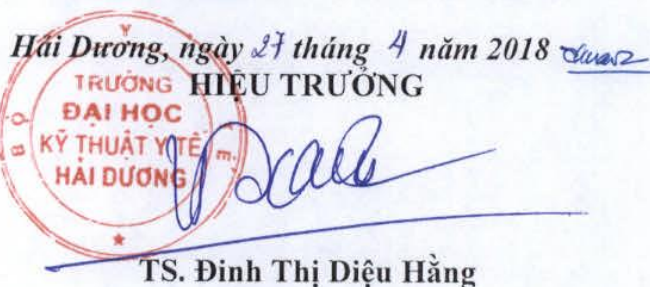 Hải Dương, ngày 27 tháng 4 năm 2018
HIỆU TRƯỞNG
BỘ Y TẾ
TRƯỜNG
ĐẠI HỌC
KỸ THUẬT Y TẾ
HẢI DƯƠNG
TS. Đinh Thị Diệu Hằng